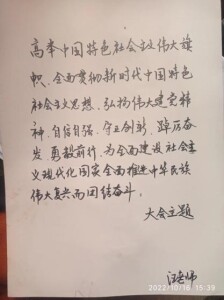 高举中国特色社会主义伟大旗
帜、全面贯彻新时代中国特色
社会主义思想，弘扬伟大建党精
神，自信自强、守正创新，踔厉奋
发、勇毅前行，为全面建设社会主
义现代化国家全面推进中华民族
伟大复兴而团结奋斗。
大会主题
汪老师
2022/10/16 15:39